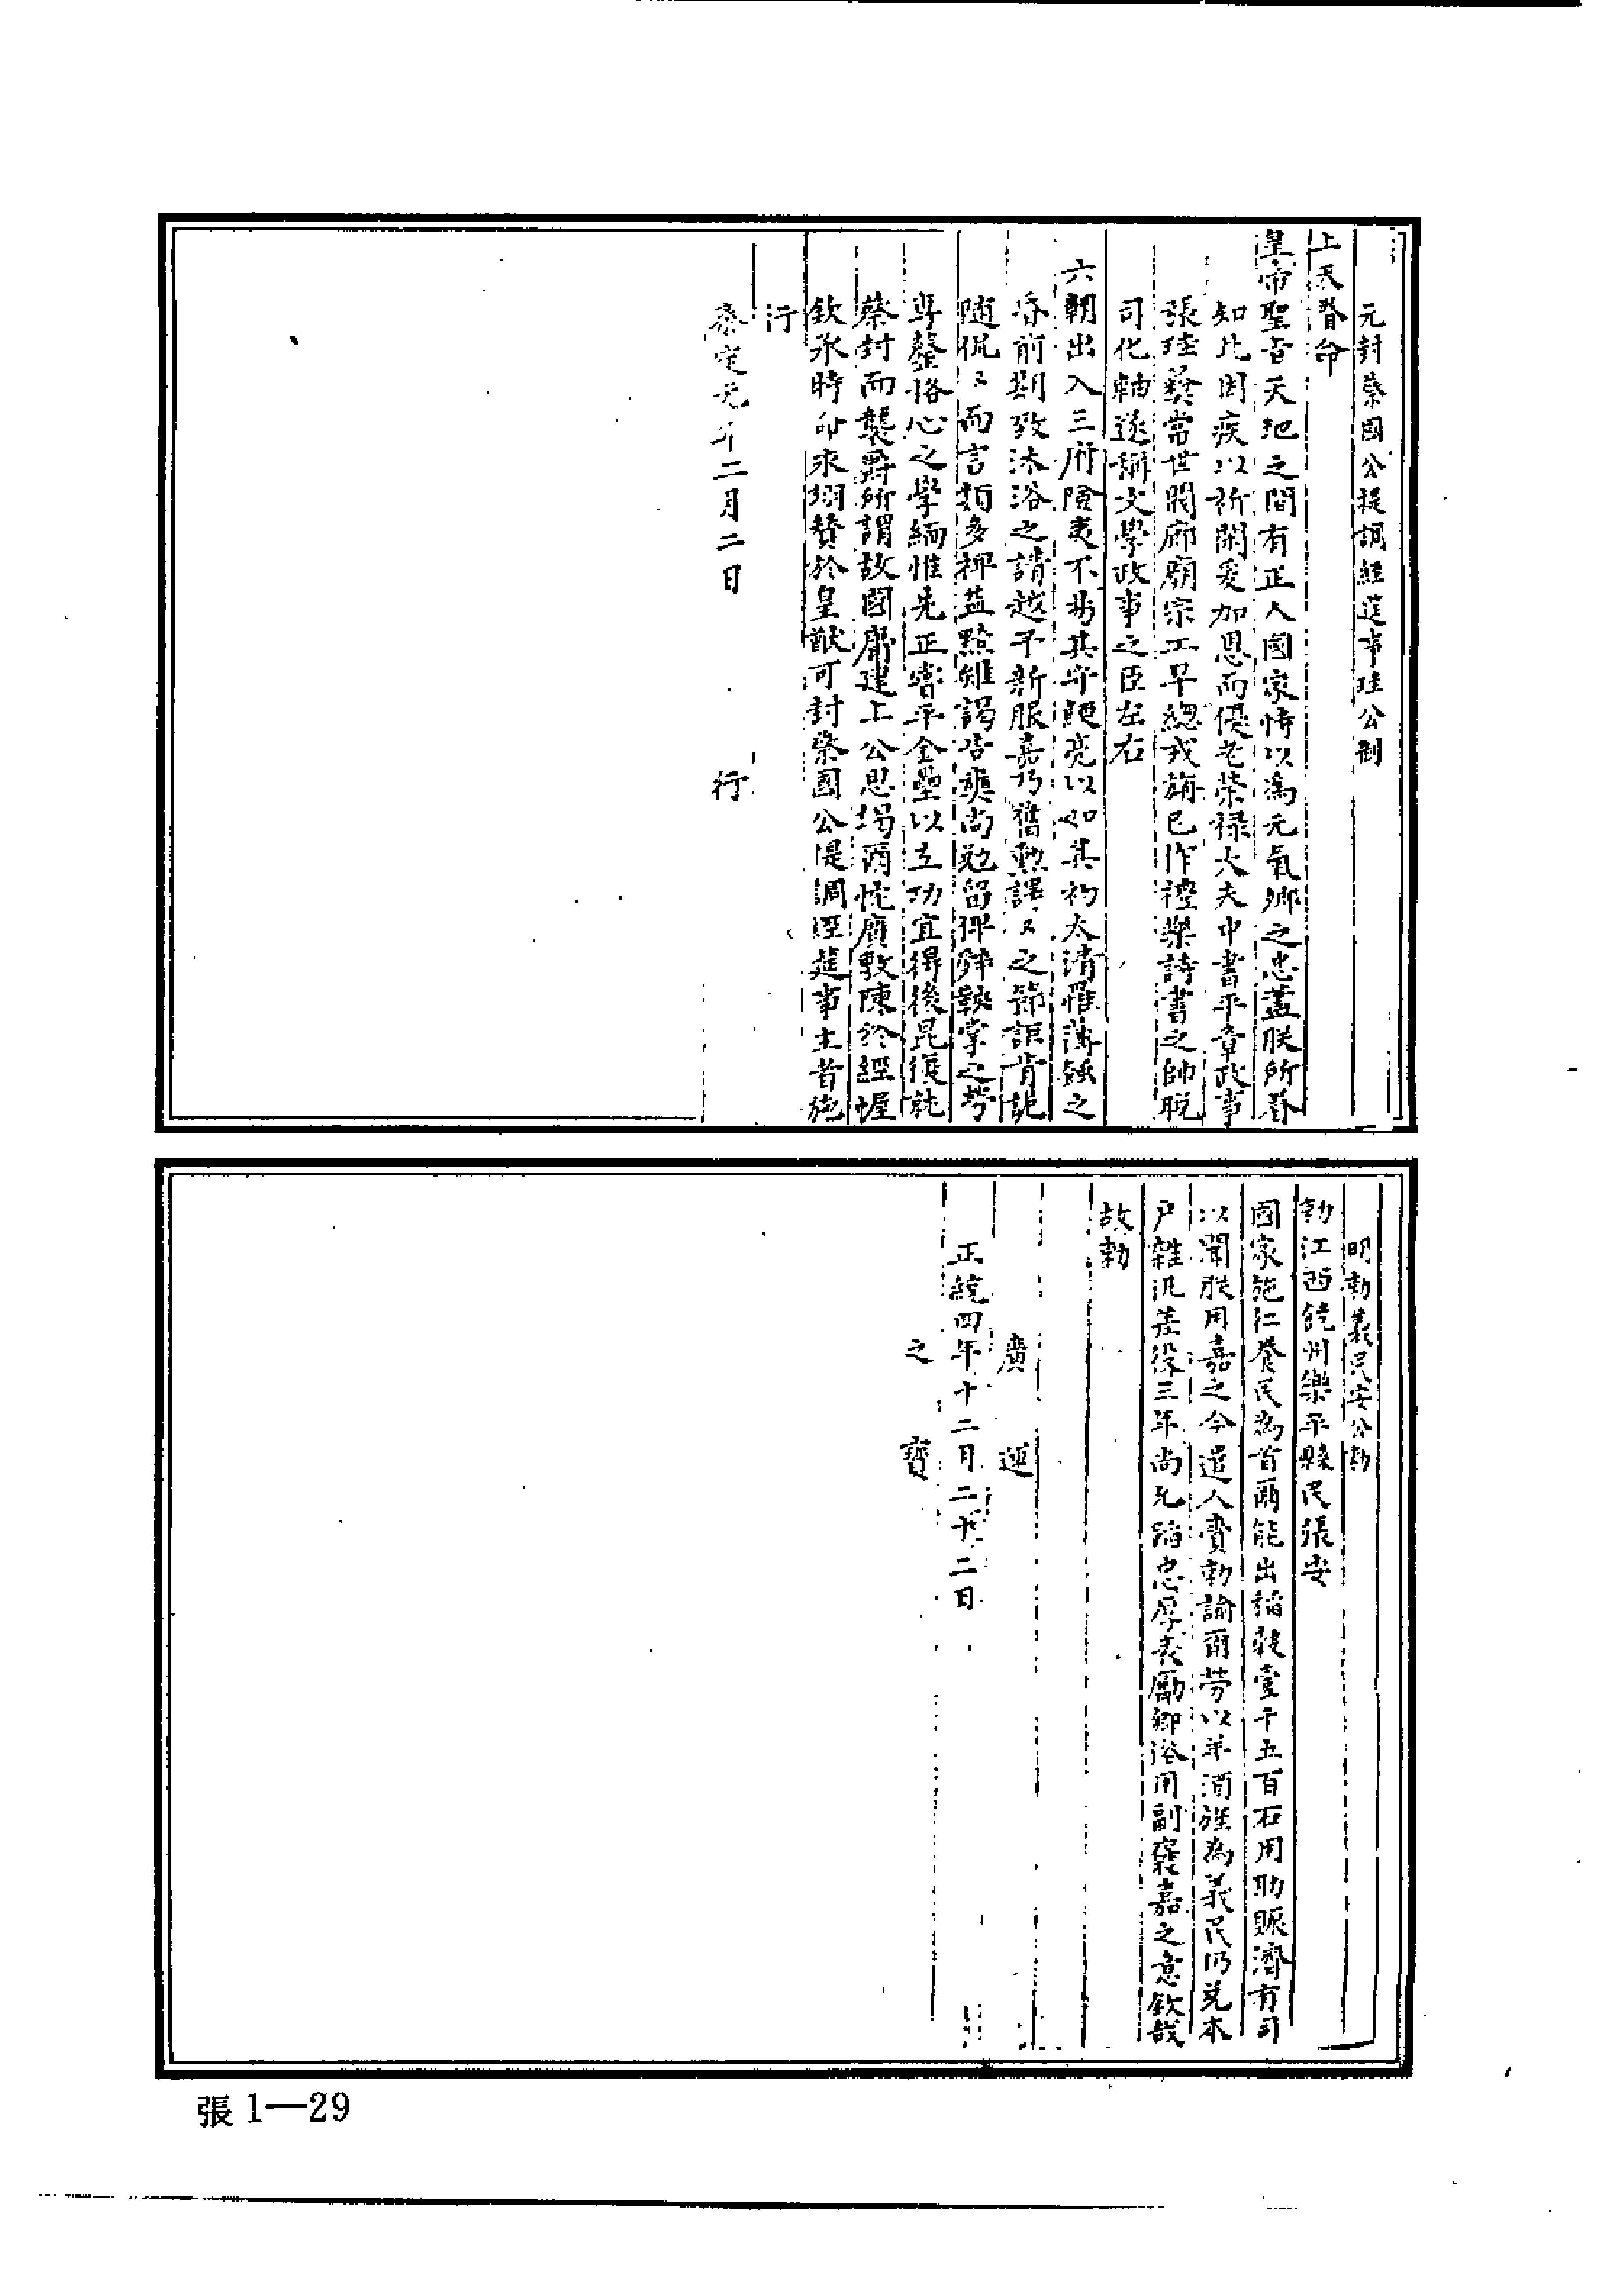 元封蔡國公提調經筵事珪公制
上天眷命
皇帝聖旨天地之間有正人國家恃以為元氣卿之忠藎朕所眷
知比因疾以祈閑爰加恩而優老榮祿大夫中書平章政事
張珪奕當世閥廊廟宗工早總戎旃已作禮樂詩書之帥脫
司化軸遂稱文學政事之臣左右
六朝出入三府險夷不易其守鯁亮以如其初太清罹薄蝕之
昏前剿致沐浴之請越予新服嘉乃舊勳謀又之節詎肯詭
隨侃々而言類多裨益黯雖謁告奭尚勉留俾辭鞅掌之勞
專罄恪心之學緬惟先正嘗平金壘以立功宜得後昆復就
蔡封而襲爵所謂故國膺建上公思竭爾忱廣敷陳於經幄
欽承時命永翊贊於皇猷可封蔡國公提調經筵事主者施
行
泰定元年二月二日　行
明勅義民安公勅
勅江西饒州樂平縣民張安
國家施仁養民為首爾能出稻穀壹千五百石用助賑濟有司
以聞朕用嘉之今遣人賫勅諭爾勞以羊酒旌為義民仍免本
戶雜汎差役三年尚允蹈忠厚表勵鄉俗用副褒嘉之意欽哉
故勅
廣運
正統四年十二月二十二日
之寶
張 1—29